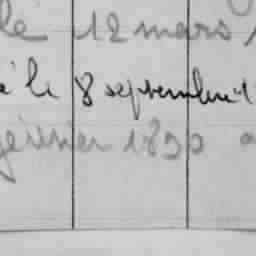 le 12 mars
à le 8 septembre 1
février 1890 a